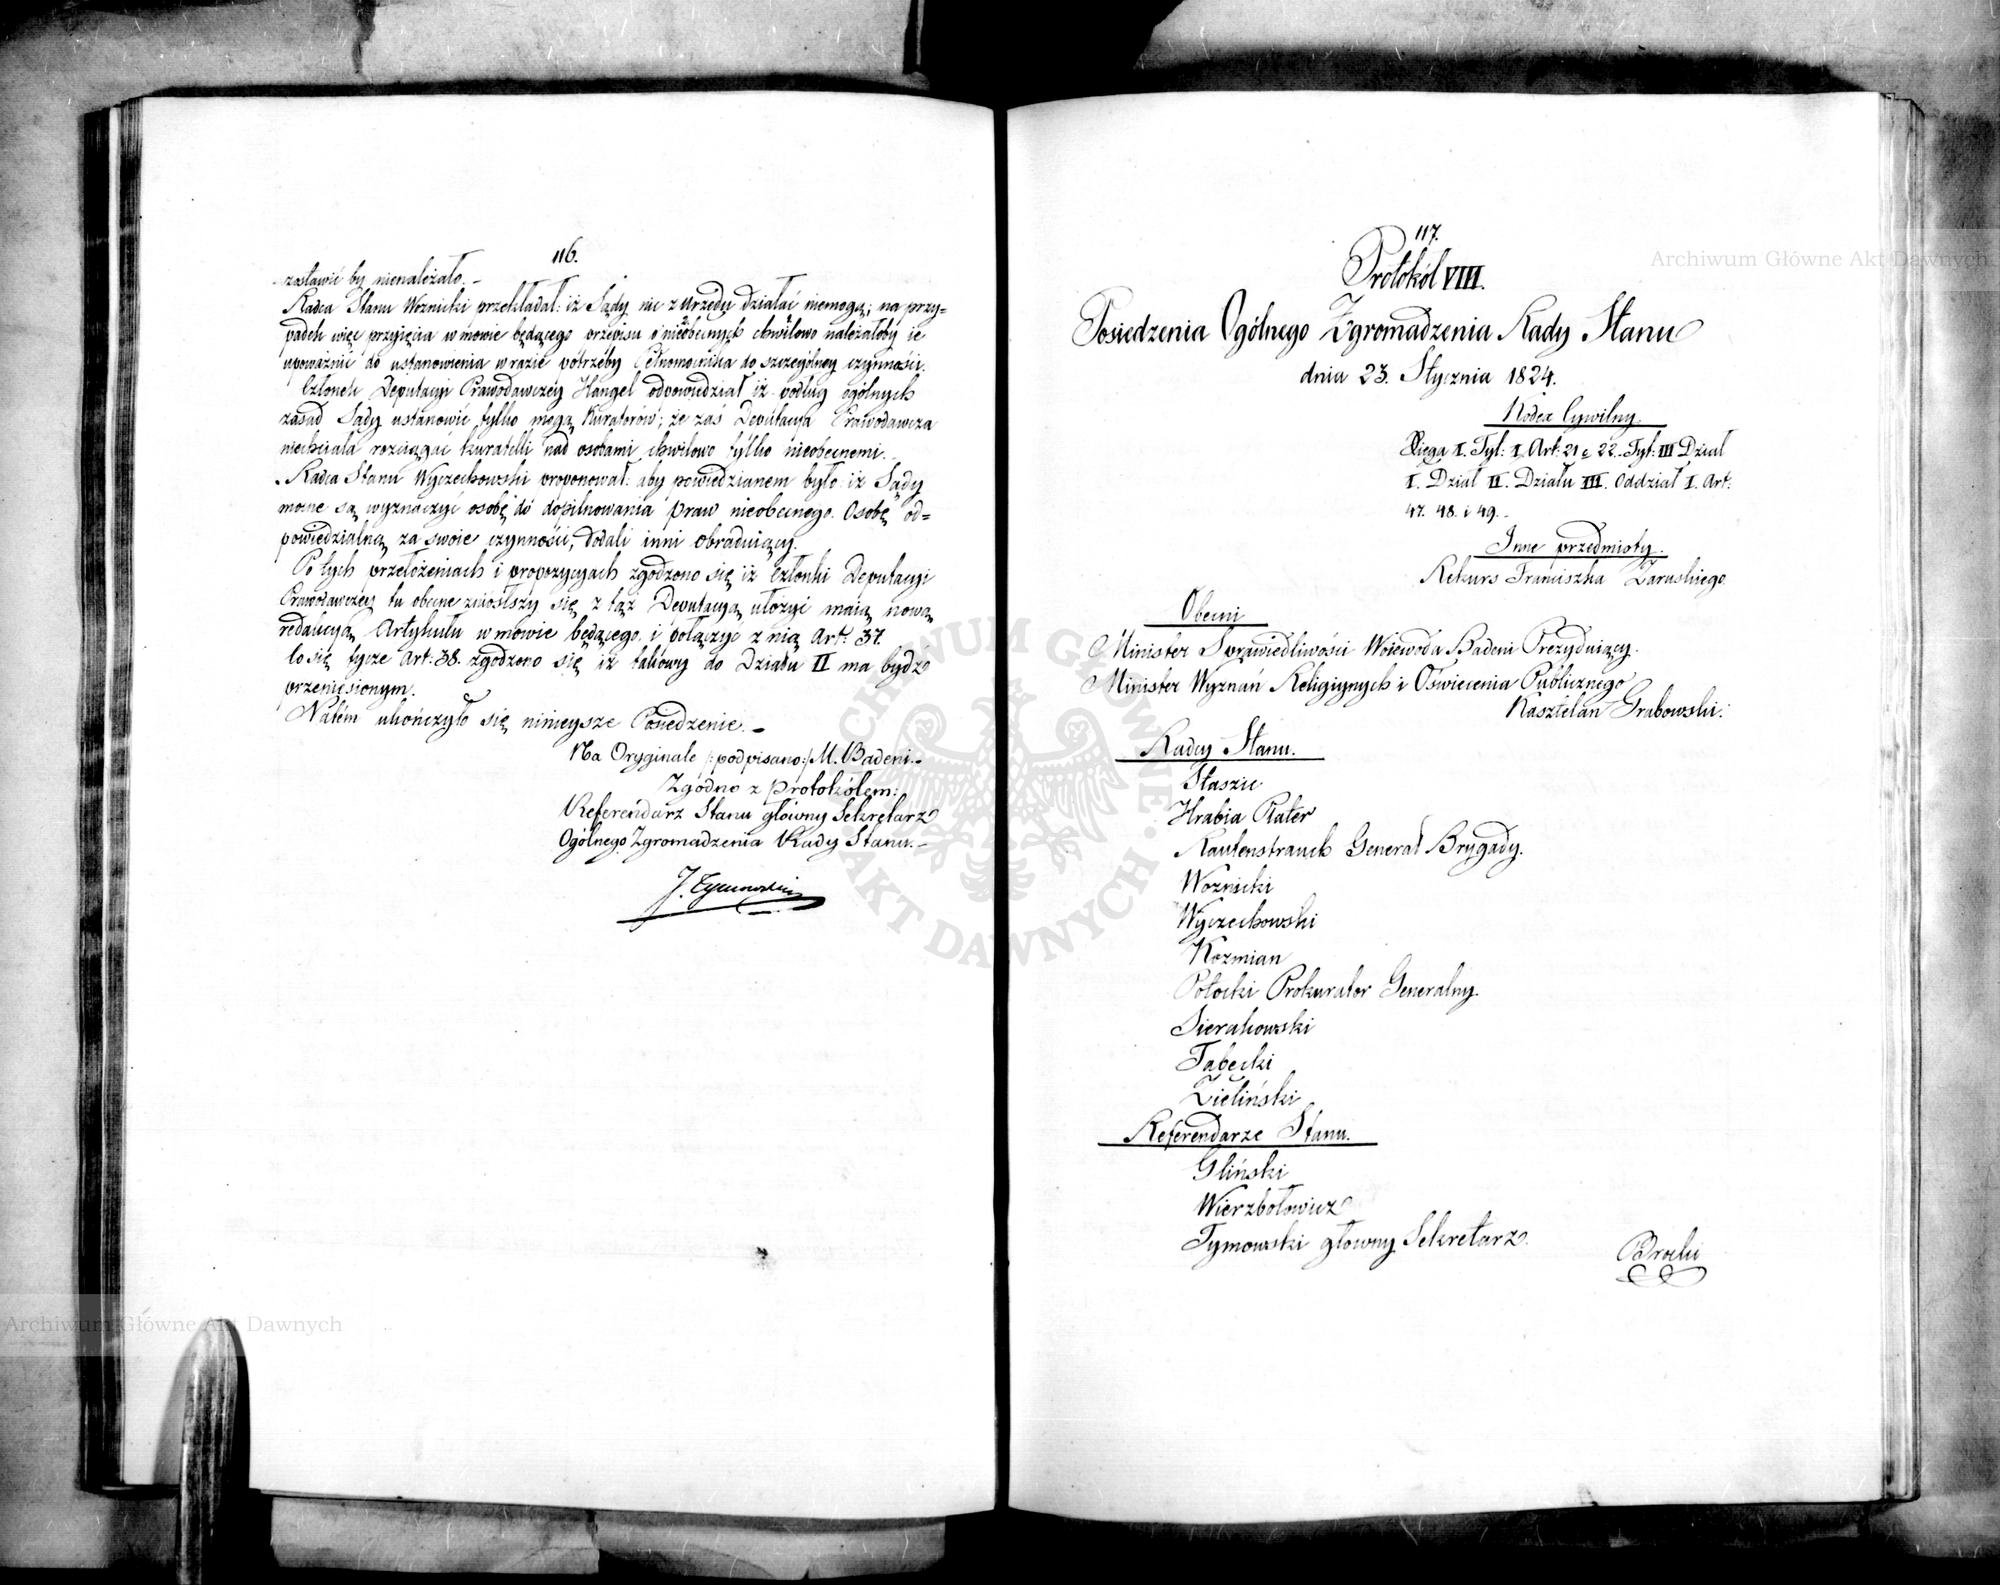 116.
zostawić by nienależało. –
Radca Stanu Woznicki przekładał: iż Sądy nic z Urzędu działać niemogą; na przy=
padek więc przyięcia w mowie będącego przepisu o nieobecnych chwilowo należałoby ie
upoważnić do ustanowienia w razie potrzeby Pełnomocnika do szczególney czynności.
Członek Deputacyi Prawodawczey Hangel odpowiedział iż podług ogólnych
zasad Sądy ustanowić tylko mogą Kuratorów; że zaś Deputacya Prawodawcza
niechciała rozciągać kurateli nad osobami chwilowo tylko nieobecnemi.
Radca Stanu Wyczechowski proponował: aby powiedzianem było: iż Sądy
mocne są wyznaczyć osobę do dopilnowania praw nieobecnego. Osobę od=
powiedzialną za swoie czynności, dodali inni Obraduiący.
Po tych przełożeniach i propozycyach zgodzono się iż Członki Deputacyi
Prawodawczey tu obecne zniosłszy się z tąż Deputacyą ułożyć maią nową
redakcyą Artykułu w mowie będącego i połączyć z nią Art: 37.
Co się tycze Art: 38. zgodzono się iż takowy do Działu II ma bydź
przeniesionym.
Natém ukończyło się ninieysze Posiedzenie. –
Na Oryginale /: podpisano :/ M. Badeni. –
Zgodno z Protokółem:
Referendarz Stanu główny Sekretarz
Ogólnego Zgromadzenia Rady Stanu. –
J. Tymowski
117.
Protokół VIII.
Posiedzenia Ogólnego Zgromadzenia Rady Stanu
dnia 23. Stycznia 1824.
Kodex Cywilny.
Xięga I. Tyt: I. Art: 21 e 22. Tyt: III Dział
I. Dział II. Działu III. Oddział I. Art:
47. 48. i 49. –
Inne przedmioty.
Rekurs Franciszka Zaruskiego
Obecni
Minister Sprawiedliwości Woiewoda Badeni Prezyduiący.
Minister Wyznań Religiynych i Oświecenia Publicznego
Kasztelan Grabowski.
Radcy Stanu.
Staszic
Hrabia Plater
Rautenstrauch Generał Brygady.
Woznicki
Wyczechowski
Kozmian
Potocki Prokurator Generalny.
Sierakowski
Tabęcki
Zieliński
Referendarze Stanu.
Gliński
Wierzbołowicz
Tymowski główny Sekretarz.
Archiwum Główne Akt Dawnych
Archiwum Główne Akt Dawnych
ARCHIWUM GŁÓWNE AKT DAWNYCH